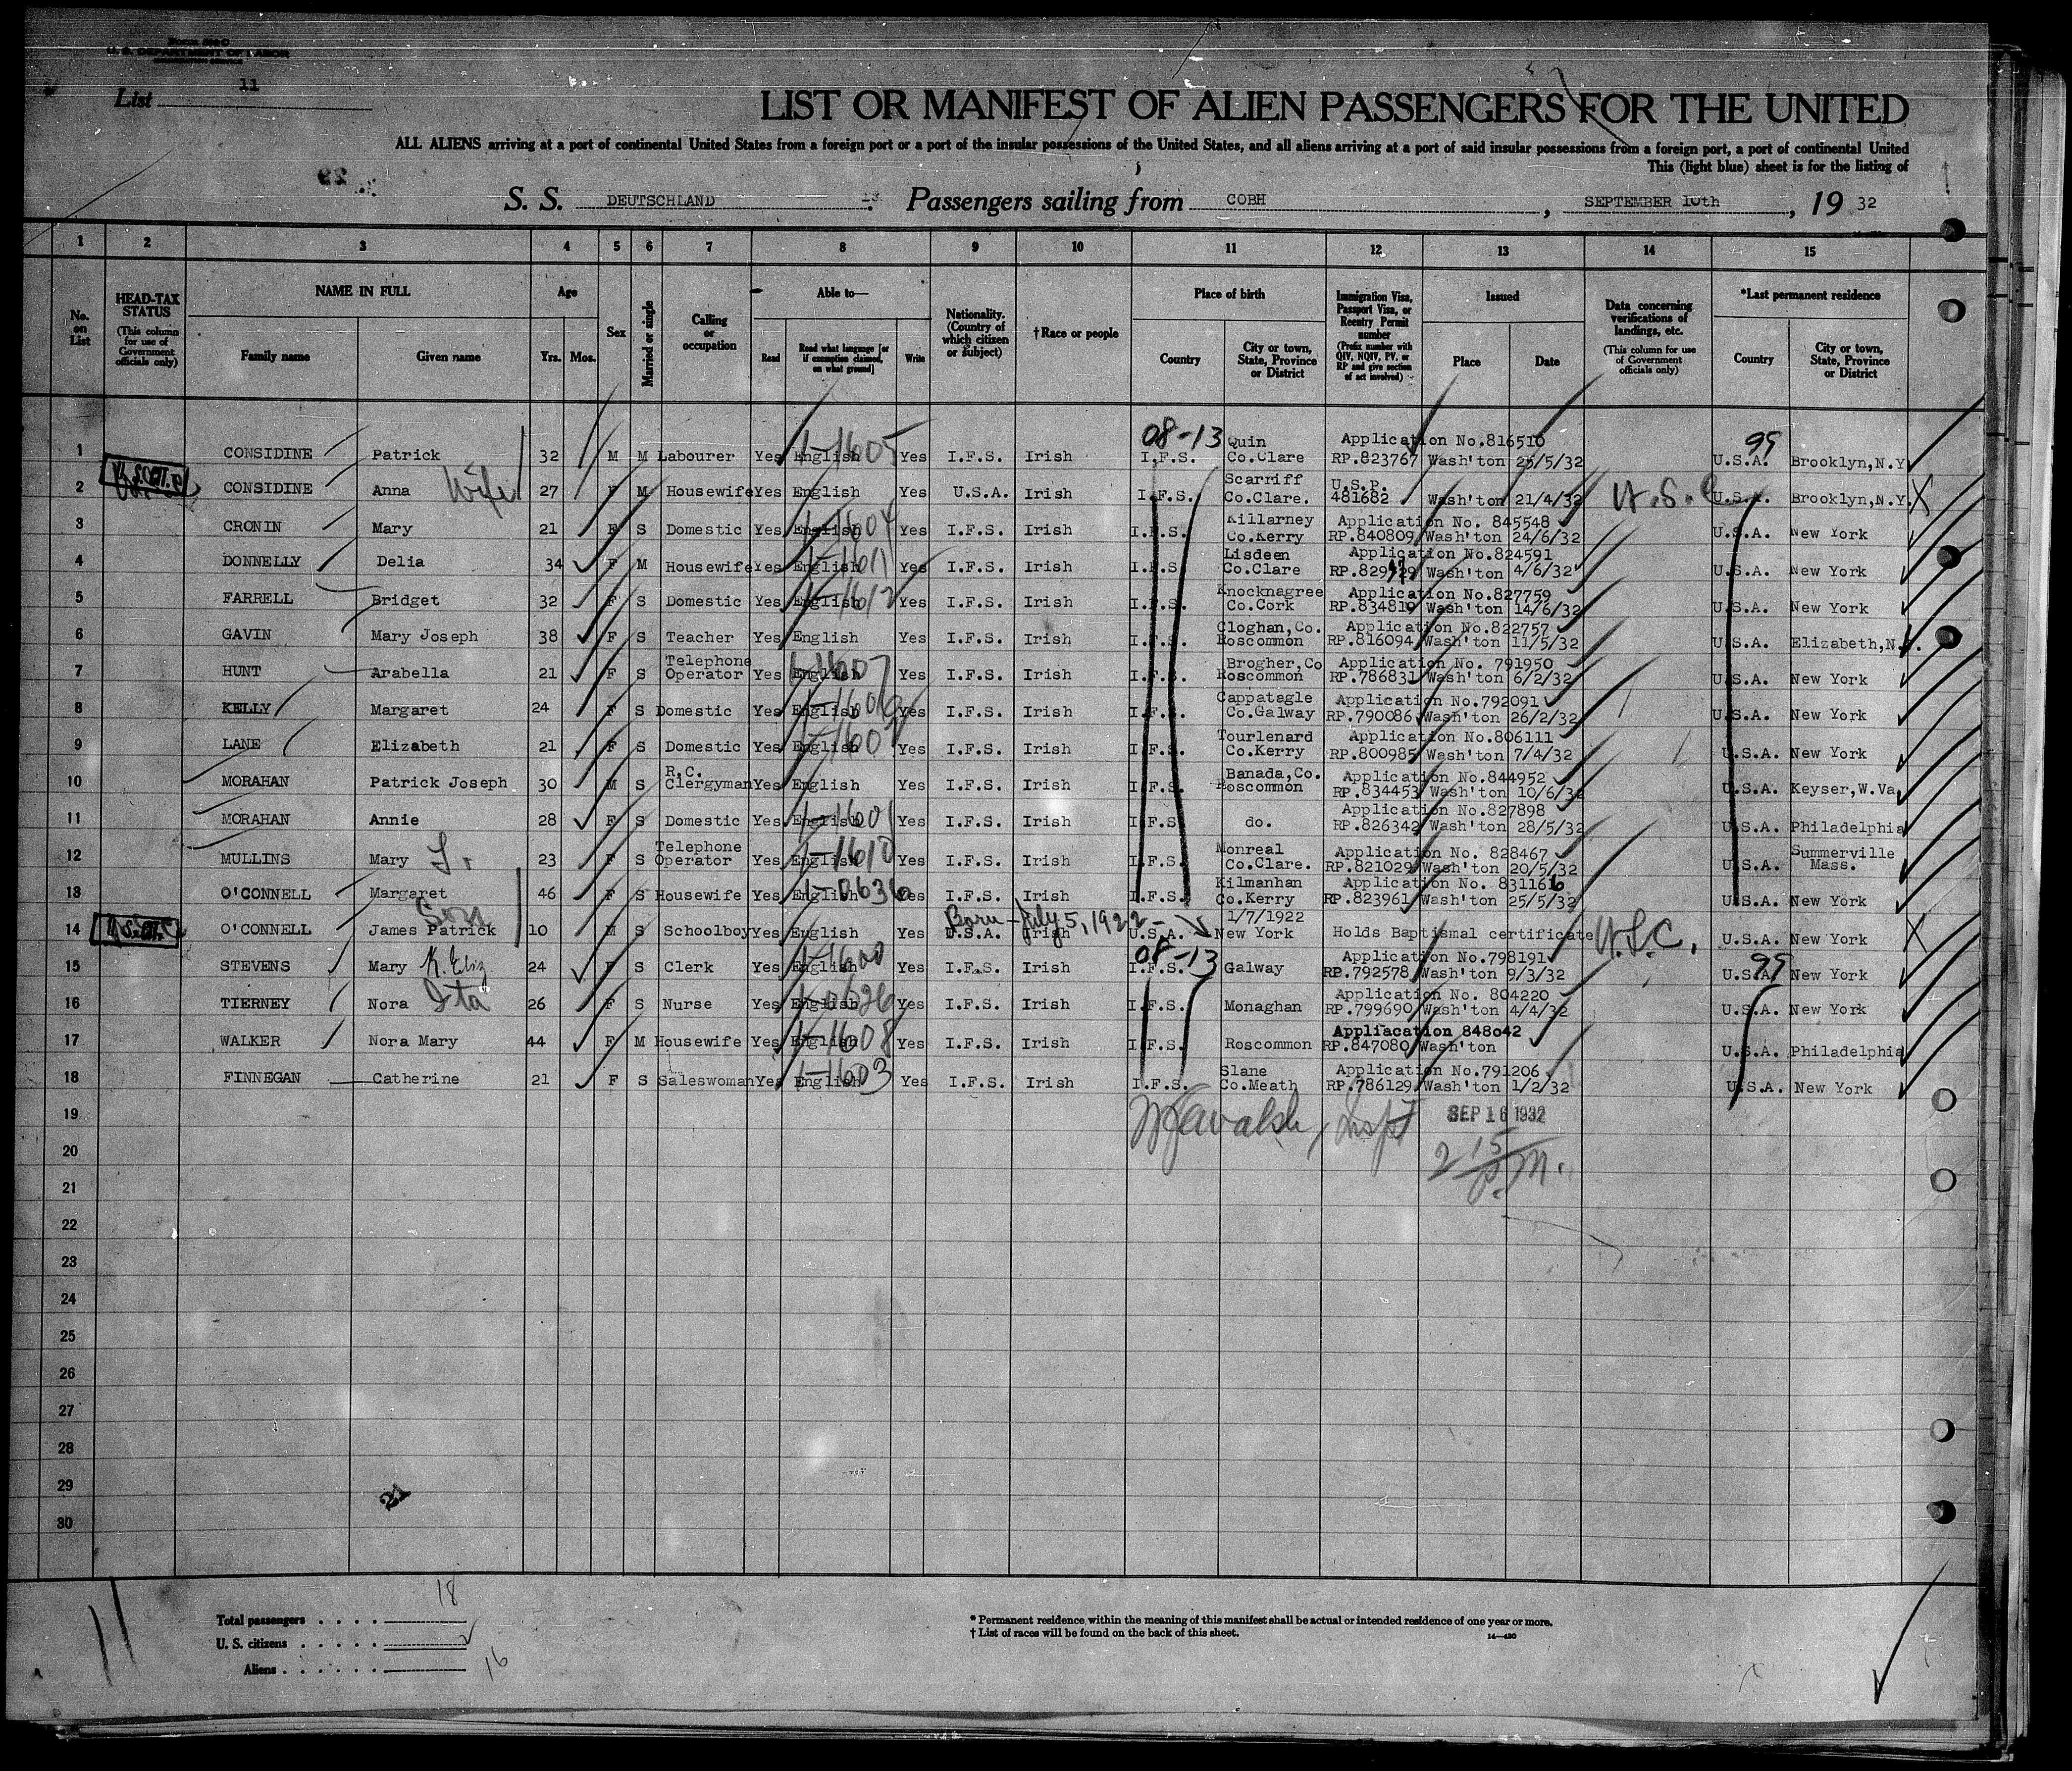 Form 500 C
U. S. DEPARTMENT OF LABOR
List 11
LIST OR MANIFEST OF ALIEN PASSENGERS FOR THE UNITED
ALL ALIENS arriving at a port of continental United States from a foreign port or a port of the insular possessions of the United States, and all aliens arriving at a port of said insular possessions from a foreign port, a port of continental United
This (light blue) sheet is for the listing of
S. S. DEUTSCHLAND Passengers sailing from COBH, SEPTEMBER 10th, 19 32
1 2 3 4 5 6 7 8 9 10 11 12 13 14 15
No. on List
HEAD-TAX STATUS (This column for use of Government officials only)
NAME IN FULL Family name Given name
Age Yrs. Mos.
Sex
Married or single
Calling or occupation
Able to— Read Read what language [or if exemption claimed, on what ground] Write
Nationality. (Country of which citizen or subject)
†Race or people
Place of birth Country City or town, State, Province or District
Immigration Visa, Passport Visa, or Reentry Permit number (Prefix number with QIV, NQIV, PV, or RP and give section of act involved)
Issued Place Date
Data concerning verifications of landings, etc. (This column for use of Government officials only)
*Last permanent residence Country City or town, State, Province or District
08-13 Quin Application No.816510 99
1 CONSIDINE Patrick 32 M M Labourer Yes English 1-1605 Yes I.F.S. Irish I.F.S. Co.Clare RP.823767 Wash'ton 25/5/32 U.S.A. Brooklyn,N.Y
Scarriff U.S.P.
2 CONSIDINE Anna Wife 27 F M Housewife Yes English Yes U.S.A. Irish I.F.S. Co.Clare. 481682 Wash'ton 21/4/32 U.S.C U.S.A. Brooklyn,N.Y. X
Killarney Application No. 845548
3 CRONIN Mary 21 F S Domestic Yes English 1-1604 Yes I.F.S. Irish I.F.S. Co.Kerry RP.840809 Wash'ton 24/6/32 U.S.A. New York
Lisdeen Application No.824591
4 DONNELLY Delia 34 F M Housewife Yes English 1-1611 Yes I.F.S. Irish I.F.S Co.Clare Wash'ton 4/6/32 U.S.A. New York
Knocknagree Application No.827759
5 FARRELL Bridget 32 F S Domestic Yes English 1-1612 Yes I.F.S. Irish I.F.S. Co.Cork RP.834819 Wash'ton 14/6/32 U.S.A. New York
Cloghan,Co. Application No.822757
6 GAVIN Mary Joseph 38 F S Teacher Yes English Yes I.F.S. Irish I.F.S. Roscommon RP.816094 Wash'ton 11/5/32 U.S.A. Elizabeth,N.J.
Telephone Brogher,Co Application No. 791950
7 HUNT Arabella 21 F S Operator Yes English 1-1607 Yes I.F.S. Irish I.F.S. Roscommon RP.786831 Wash'ton 6/2/32 U.S.A. New York
Cappatagle Application No.792091
8 KELLY Margaret 24 F S Domestic Yes English Yes I.F.S. Irish I.F.S. Co.Galway RP.790086 Wash'ton 26/2/32 U.S.A. New York
Tourlenard Application No.806111
9 LANE Elizabeth 21 F S Domestic Yes English Yes I.F.S. Irish I.F.S. Co.Kerry RP.800985 Wash'ton 7/4/32 U.S.A. New York
R.C. Banada,Co. Application No.844952
10 MORAHAN Patrick Joseph 30 M S Clergyman Yes English Yes I.F.S. Irish I.F.S. Roscommon RP.834453 Wash'ton 10/6/32 U.S.A. Keyser,W.Va.
Application No.827898
11 MORAHAN Annie 28 F S Domestic Yes English 1-1601 Yes I.F.S. Irish I.F.S do. RP.826342 Wash'ton 28/5/32 U.S.A. Philadelphia
Telephone Monreal Application No. 828467 Summerville
12 MULLINS Mary 23 F S Operator Yes English 1-1610 Yes I.F.S. Irish I.F.S. Co.Clare. RP.821029 Wash'ton 20/5/32 U.S.A. Mass.
Kilmanhan Application No. 831166
13 O'CONNELL Margaret 46 F S Housewife Yes English 1-0636 Yes I.F.S. Irish I.F.S. Co.Kerry RP.823961 Wash'ton 25/5/32 U.S.A. New York
Son Born - July 5, 1922 - 1/7/1922
14 O'CONNELL James Patrick 10 M S Schoolboy Yes English Yes U.S.A. Irish U.S.A. New York Holds Baptismal certificate U.S.C. U.S.A. New York X
08-13 Application No.798191 99
15 STEVENS Mary K. Eliz 24 F S Clerk Yes English 1-1600 Yes I.F.S. Irish I.F.S. Galway RP.792578 Wash'ton 9/3/32 U.S.A. New York
Application No. 804220
16 TIERNEY Nora Ita 26 F S Nurse Yes English Yes I.F.S. Irish I.F.S. Monaghan RP.799690 Wash'ton 4/4/32 U.S.A. New York
Appliacation 848042
17 WALKER Nora Mary 44 F M Housewife Yes English 1-1608 Yes I.F.S. Irish I.F.S. Roscommon RP.847080 Wash'ton U.S.A. Philadelphia
Slane Application No.791206
18 FINNEGAN Catherine 21 F S Saleswoman Yes English 1-1603 Yes I.F.S. Irish I.F.S. Co.Meath RP.786129 Wash'ton 1/2/32 U.S.A. New York
19 Walsh, Inspt SEP 16 1932
20 2 15 P.M.
21
22
23
24
25
26
27
28
29 21
30
11
Total passengers . . . . 18
U. S. citizens . . . . . 2
Aliens . . . . . . 16
* Permanent residence within the meaning of this manifest shall be actual or intended residence of one year or more.
† List of races will be found on the back of this sheet. 14—430